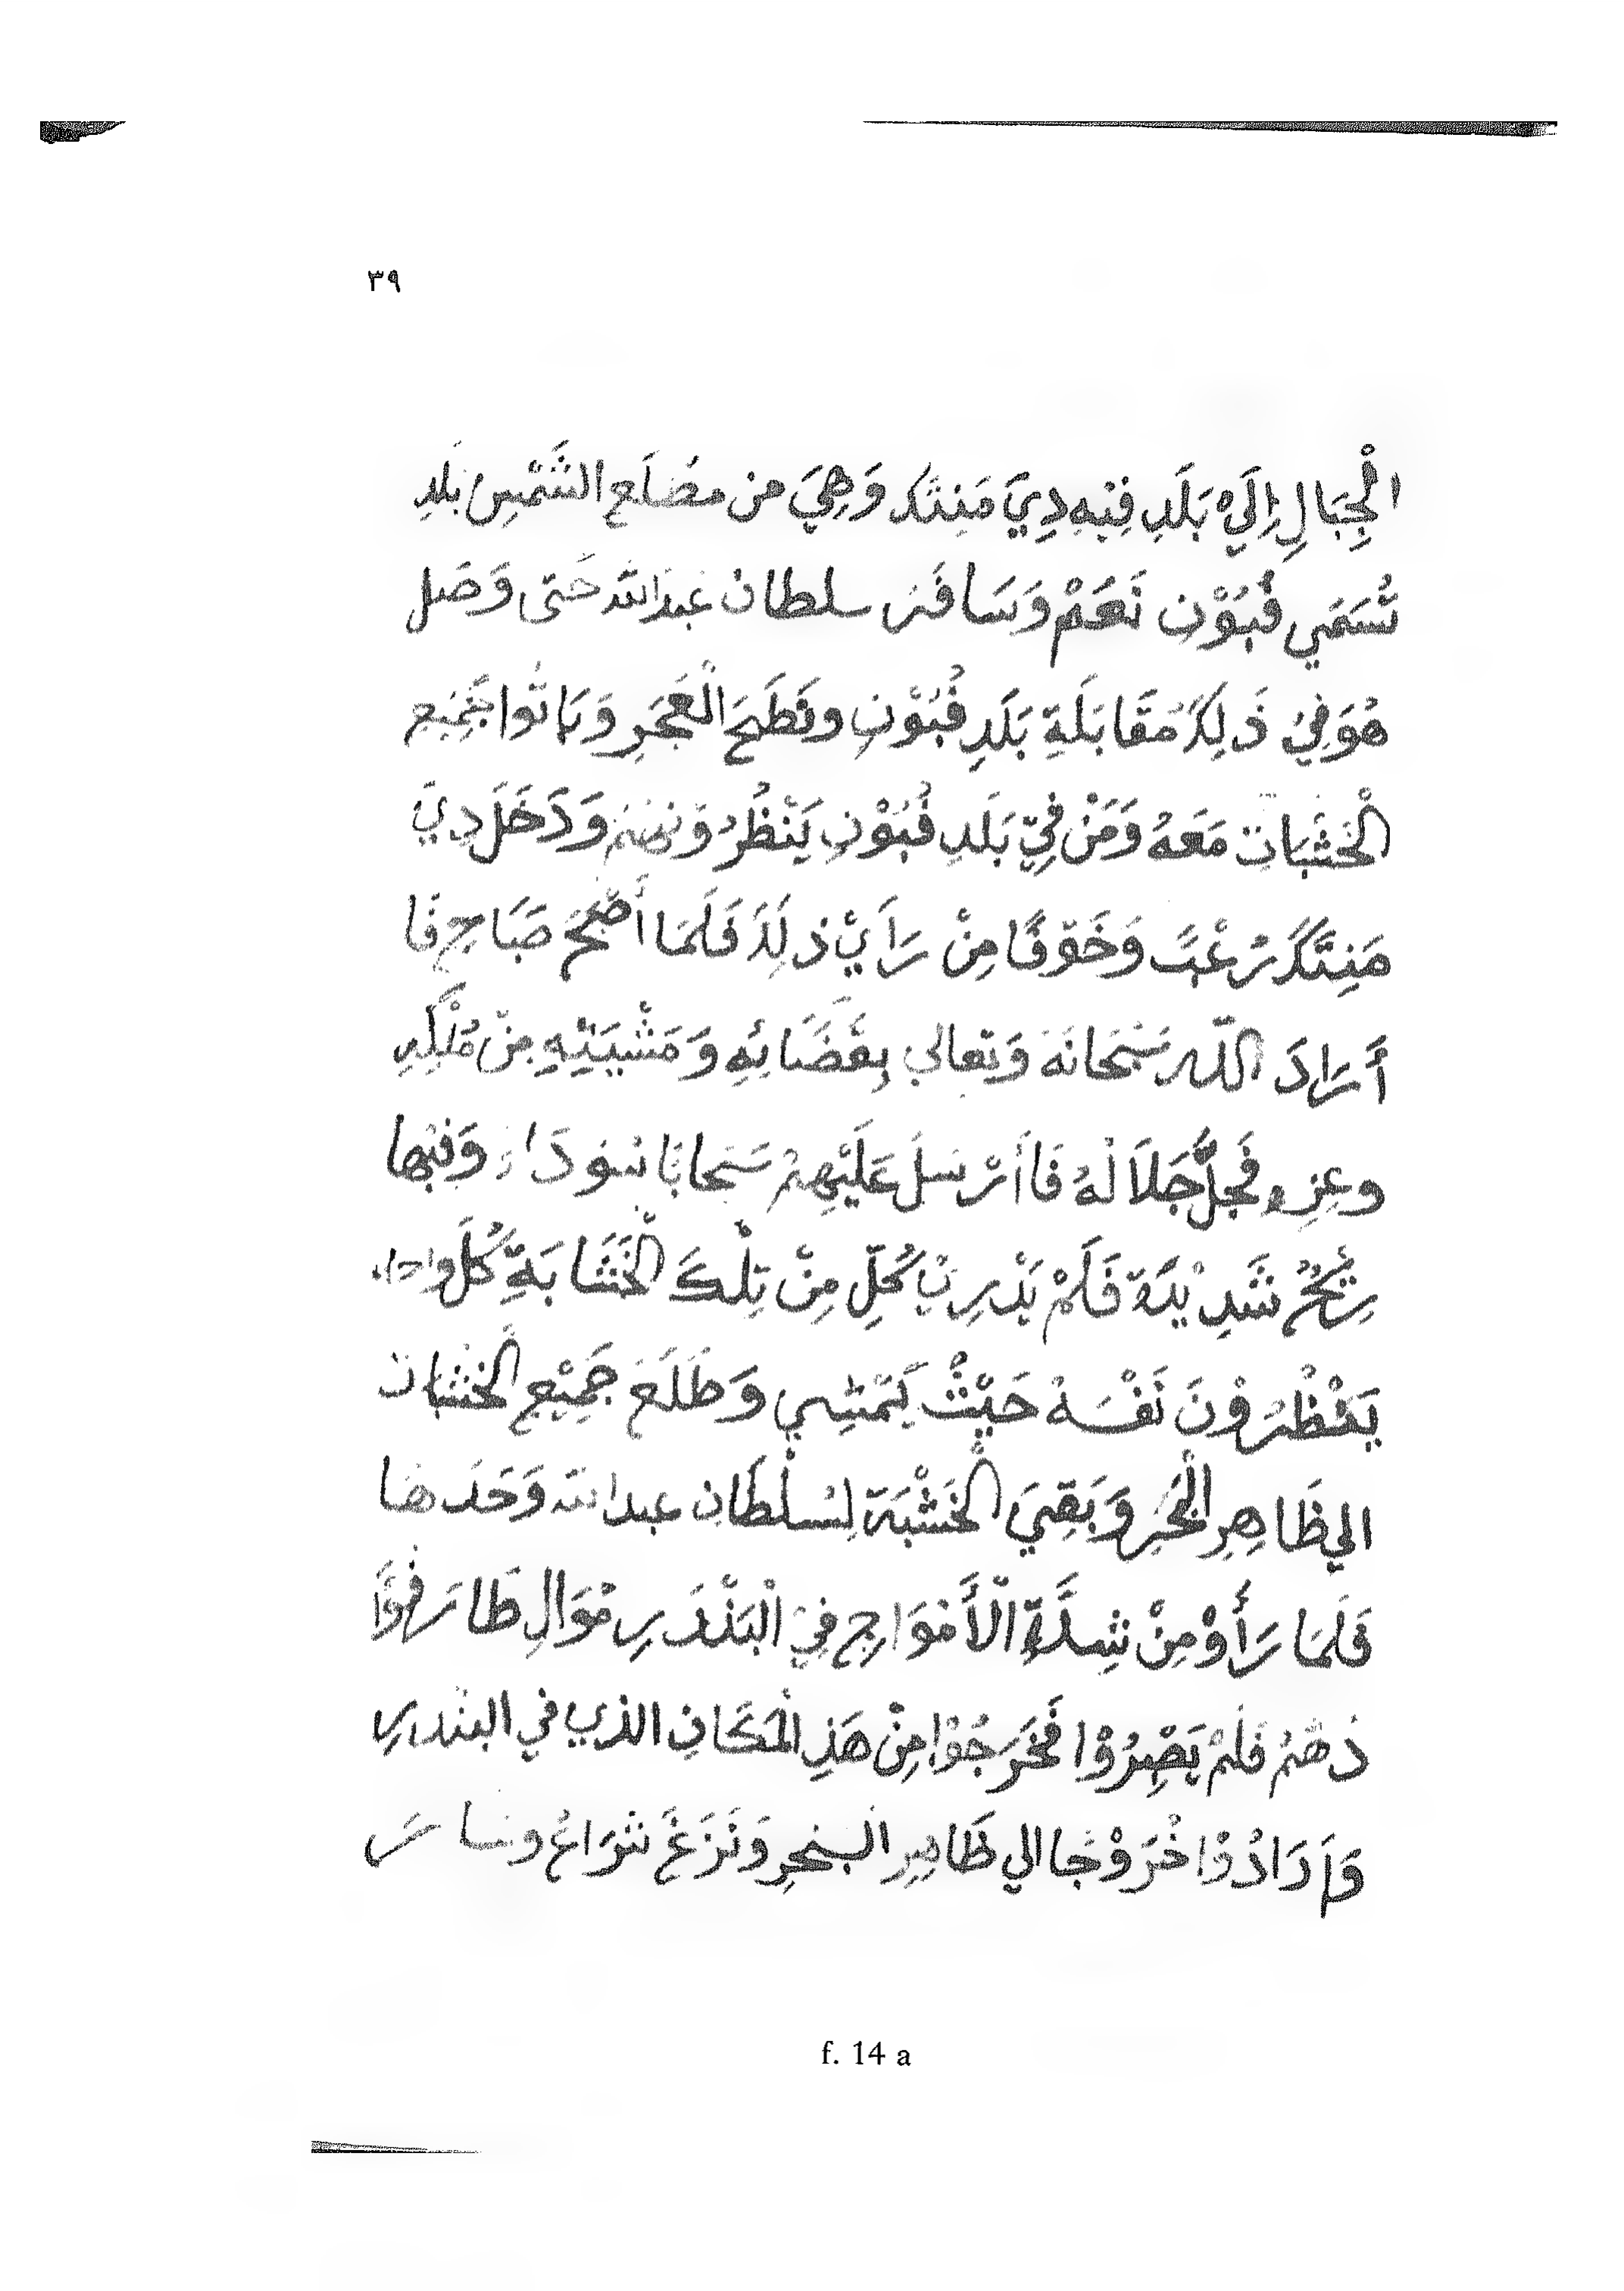 ٣٩
الْجِبَالِ إِلَيْ بَلَدِ فِيْهِ دِيَ مَنِتَكَ وَهِيَ من مضلَع الشَّمْسِ بَلَدِ
تُسَمَي فُبُوْنِ نَعَمْ وَسَافَرَ سلطان عَبدَ اللّه حَتى وَصَل
هُوَ فِيْ ذَلِكَ مُقَابَلَةِ بَلَدِ فُبُوْنِ ونَطَحَ الْعَجَرِ وَبَاتُوا جَمِيع
الْخَشَبَات مَعَهُ وَمَنْ فِيّ بَلَدِ فُبُوْنِ يَنْظُرُوْنَهُمْ وَدَخَلَ دِيَ
مَنِتَكَ رُعْبً وَخَوْفًا مِنْ رَايْ ذلِكَ فَلَمَا أَصْبَحُ صَبَاحِ فَا
أَرَادَ اللّه سُبْحَانَهُ وَتعالي بِقَضَائِهِ وَمَشْيَتِهِ مِنْ مُلْكِهِ
وعِزِهِ فَجلَّ جَلَالُهُ فَاأَرْسَلَ عَلَيْهِمْ سَحابًا سَودَاء وَفيْها
رِيْحُ شَدِيْدَة فَلَمْ يَدْرِيْ كُلِّ مِنْ تِلْكَ الْخَشَابَةِ كُل واحد
يَنْظُرُوْنَ نَفْسَهُ حَيْثُ يَمْشِي وَطَلَعَ جَمِيْع الْخشبَات
الي ظَاهِرِ الْبَحْرِ وَبَقِيَ الْخَشْبَة لِسُلْطَانِ عبد اللّه وَحَدَها
فَلَمَا رَأَوْ مِنْ شِدَّةِ الْأَمْوَاجِ فِيْ الْبَنْدَرِ مْوَالِ طَارَفوًا
ذهُمْ فَلَمْ يَصْبِرُوْا فَخَرَجُوْا مِنْ هَذِ الْمَكَانِ الذي في البنْدرِ
وَاَرَادُوْا خُرَوْجَا الي ظَاهِرِ البحرِ وَنَزَعَ شرَاعُ وسَارَ
f. 14 a